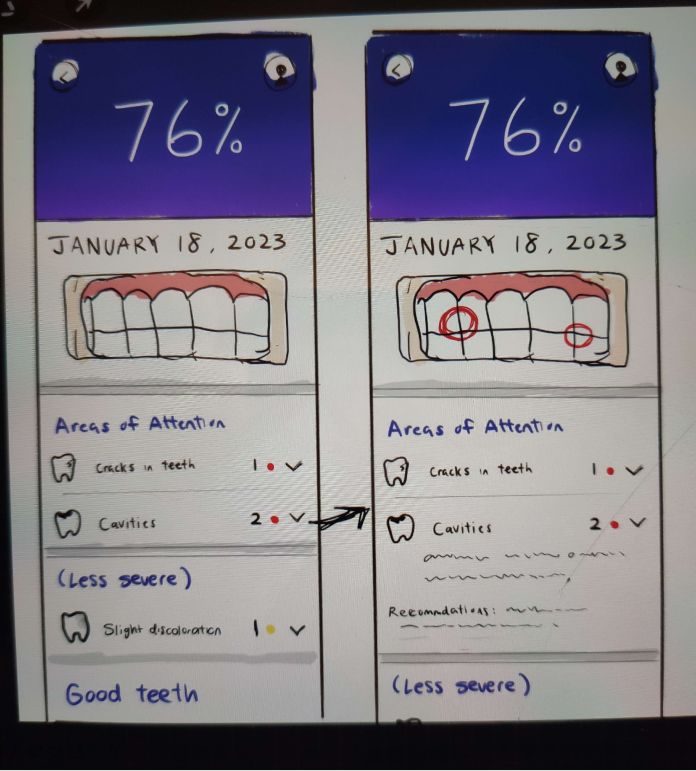 76%
JANUARY 18, 2023
Areas of Attention
Cracks in teeth 1
Cavities 2
(Less severe)
Slight discoloration 1
Good teeth
76%
JANUARY 18, 2023
Areas of Attention
Cracks in teeth 1
Cavities 2
Recommdations:
(Less severe)